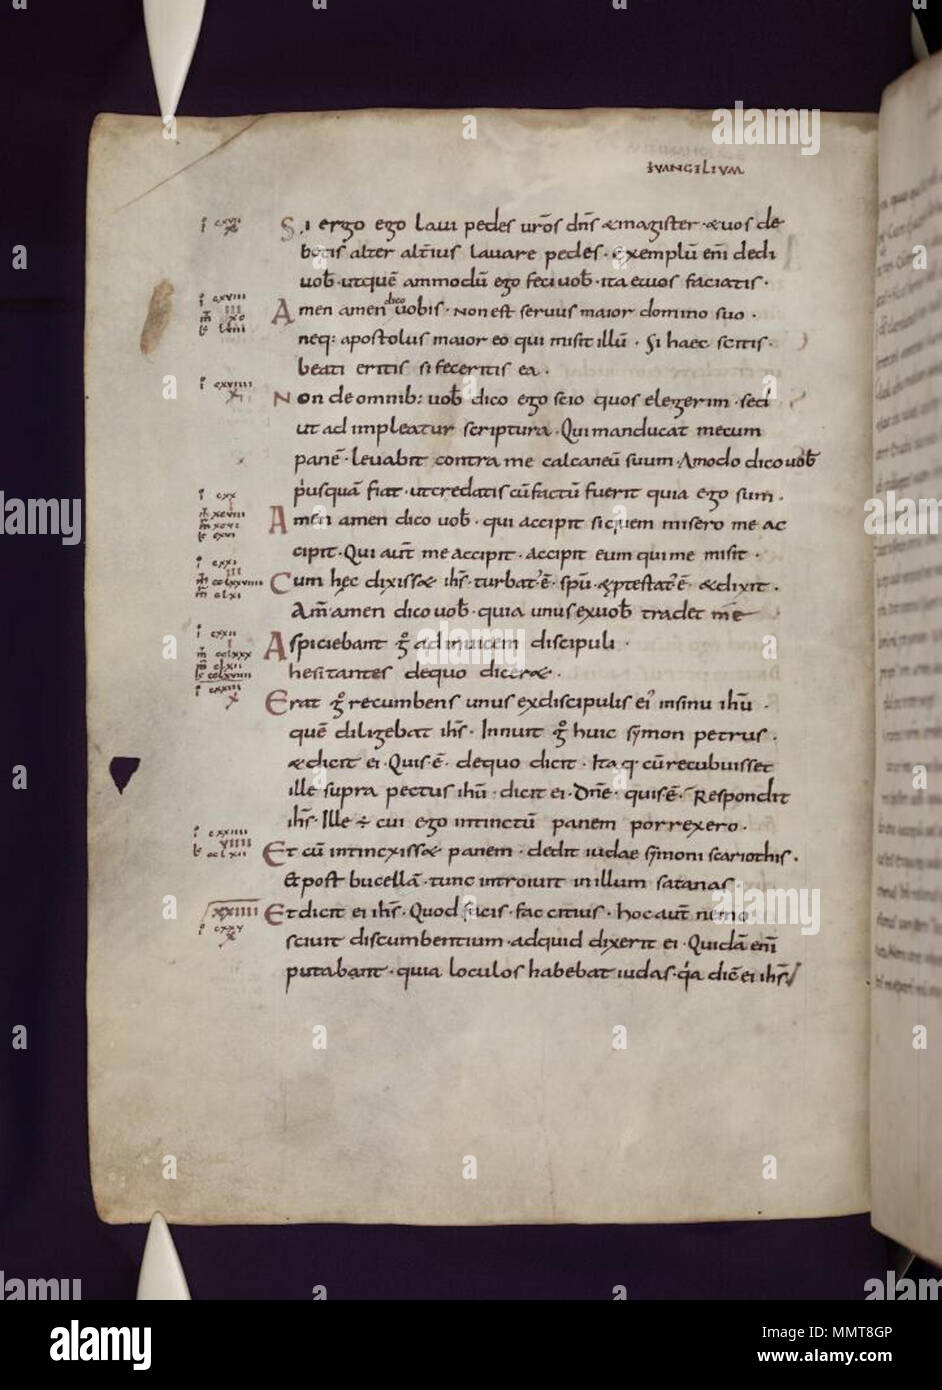 EUANGELIUM
Si ergo ego laui pedes ur̄os dn̄s & magister · & uos de
betis alter alt̄ius lauare pedes · exemplū en̄i dedi
uob̄ · ut quē ammodū ego feci uob̄ · ita & uos faciatis ·
Amen amen dico uobis · Non est seruus maior domino suo ·
neq: apostolus maior eo qui misit illū · Si haec scitis ·
beati eritis si feceritis ea ·
Non de omnib: uob̄ dico ego scio quos elegerim · sed
ut adimpleatur scriptura · Qui manducat mecum
panē · leuabit contra me calcaneū suum · Amodo dico uob̄
p̄usquā fiat · ut credatis cū factū fuerit quia ego sum ·
Amen amen dico uob̄ · qui accipit si quem misero me ac
cipit · Qui aut̄ me accipit · accipit eum qui me misit ·
Cum hęc dixiss& ih̄s · turbat' ē · sp̄u · & ptestat' ē · & dixit ·
Am̄ · amen dico uob̄ · quia unus ex uob̄ tradet me
Aspiciebant g̊ ad inuicem discipuli ·
hesitantes de quo dicer& ·
Erat g̊ recumbens unus ex discipulis ei' in sinu ih̄u ·
quē diligebat ih̄s · Innuit g̊ huic symon petrus ·
& dicit ei · Quis ē · de quo dicit · Ita q· cū recubuisset
ille supra pectus ih̄u · dicit ei · Dn̄e · quis ē · Respondit
ih̄s · Ille ÷ cui ego intinctū panem porrexero ·
Et cū intinxiss& panem · dedit iudae symoni scariothis ·
& post bucellā · tunc introiuit in illum satanas ·
xxiiii Et dicit ei ih̄s · Quod facis · fac citius · hoc aut̄ nemo
sciuit discumbentium · ad quid dixerit ei · Quidā en̄i
putabant · quia loculos habebat iudas · q̇a dic̄ ei ih̄s
alamy
Image ID: MMT8GP
www.alamy.com